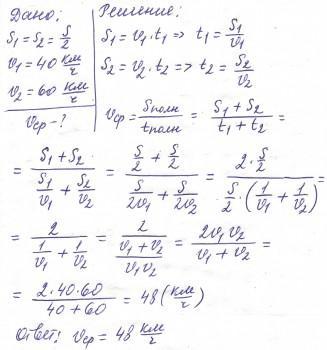 Дано:
S₁ = S₂ = S/2
v₁ = 40 км/ч
v₂ = 60 км/ч
vср - ?
Решение:
S₁ = v₁ · t₁ => t₁ = S₁/v₁
S₂ = v₂ · t₂ => t₂ = S₂/v₂
vср = Sполн/tполн = (S₁ + S₂)/(t₁ + t₂) =
= (S₁ + S₂)/(S₁/v₁ + S₂/v₂) = (S/2 + S/2)/(S/2v₁ + S/2v₂) = (2 · S/2)/(S/2 · (1/v₁ + 1/v₂)) =
= 2/(1/v₁ + 1/v₂) = 2/((v₁ + v₂)/(v₁v₂)) = 2v₁v₂/(v₁ + v₂) =
= (2 · 40 · 60)/(40 + 60) = 48 (км/ч)
Ответ: vср = 48 км/ч